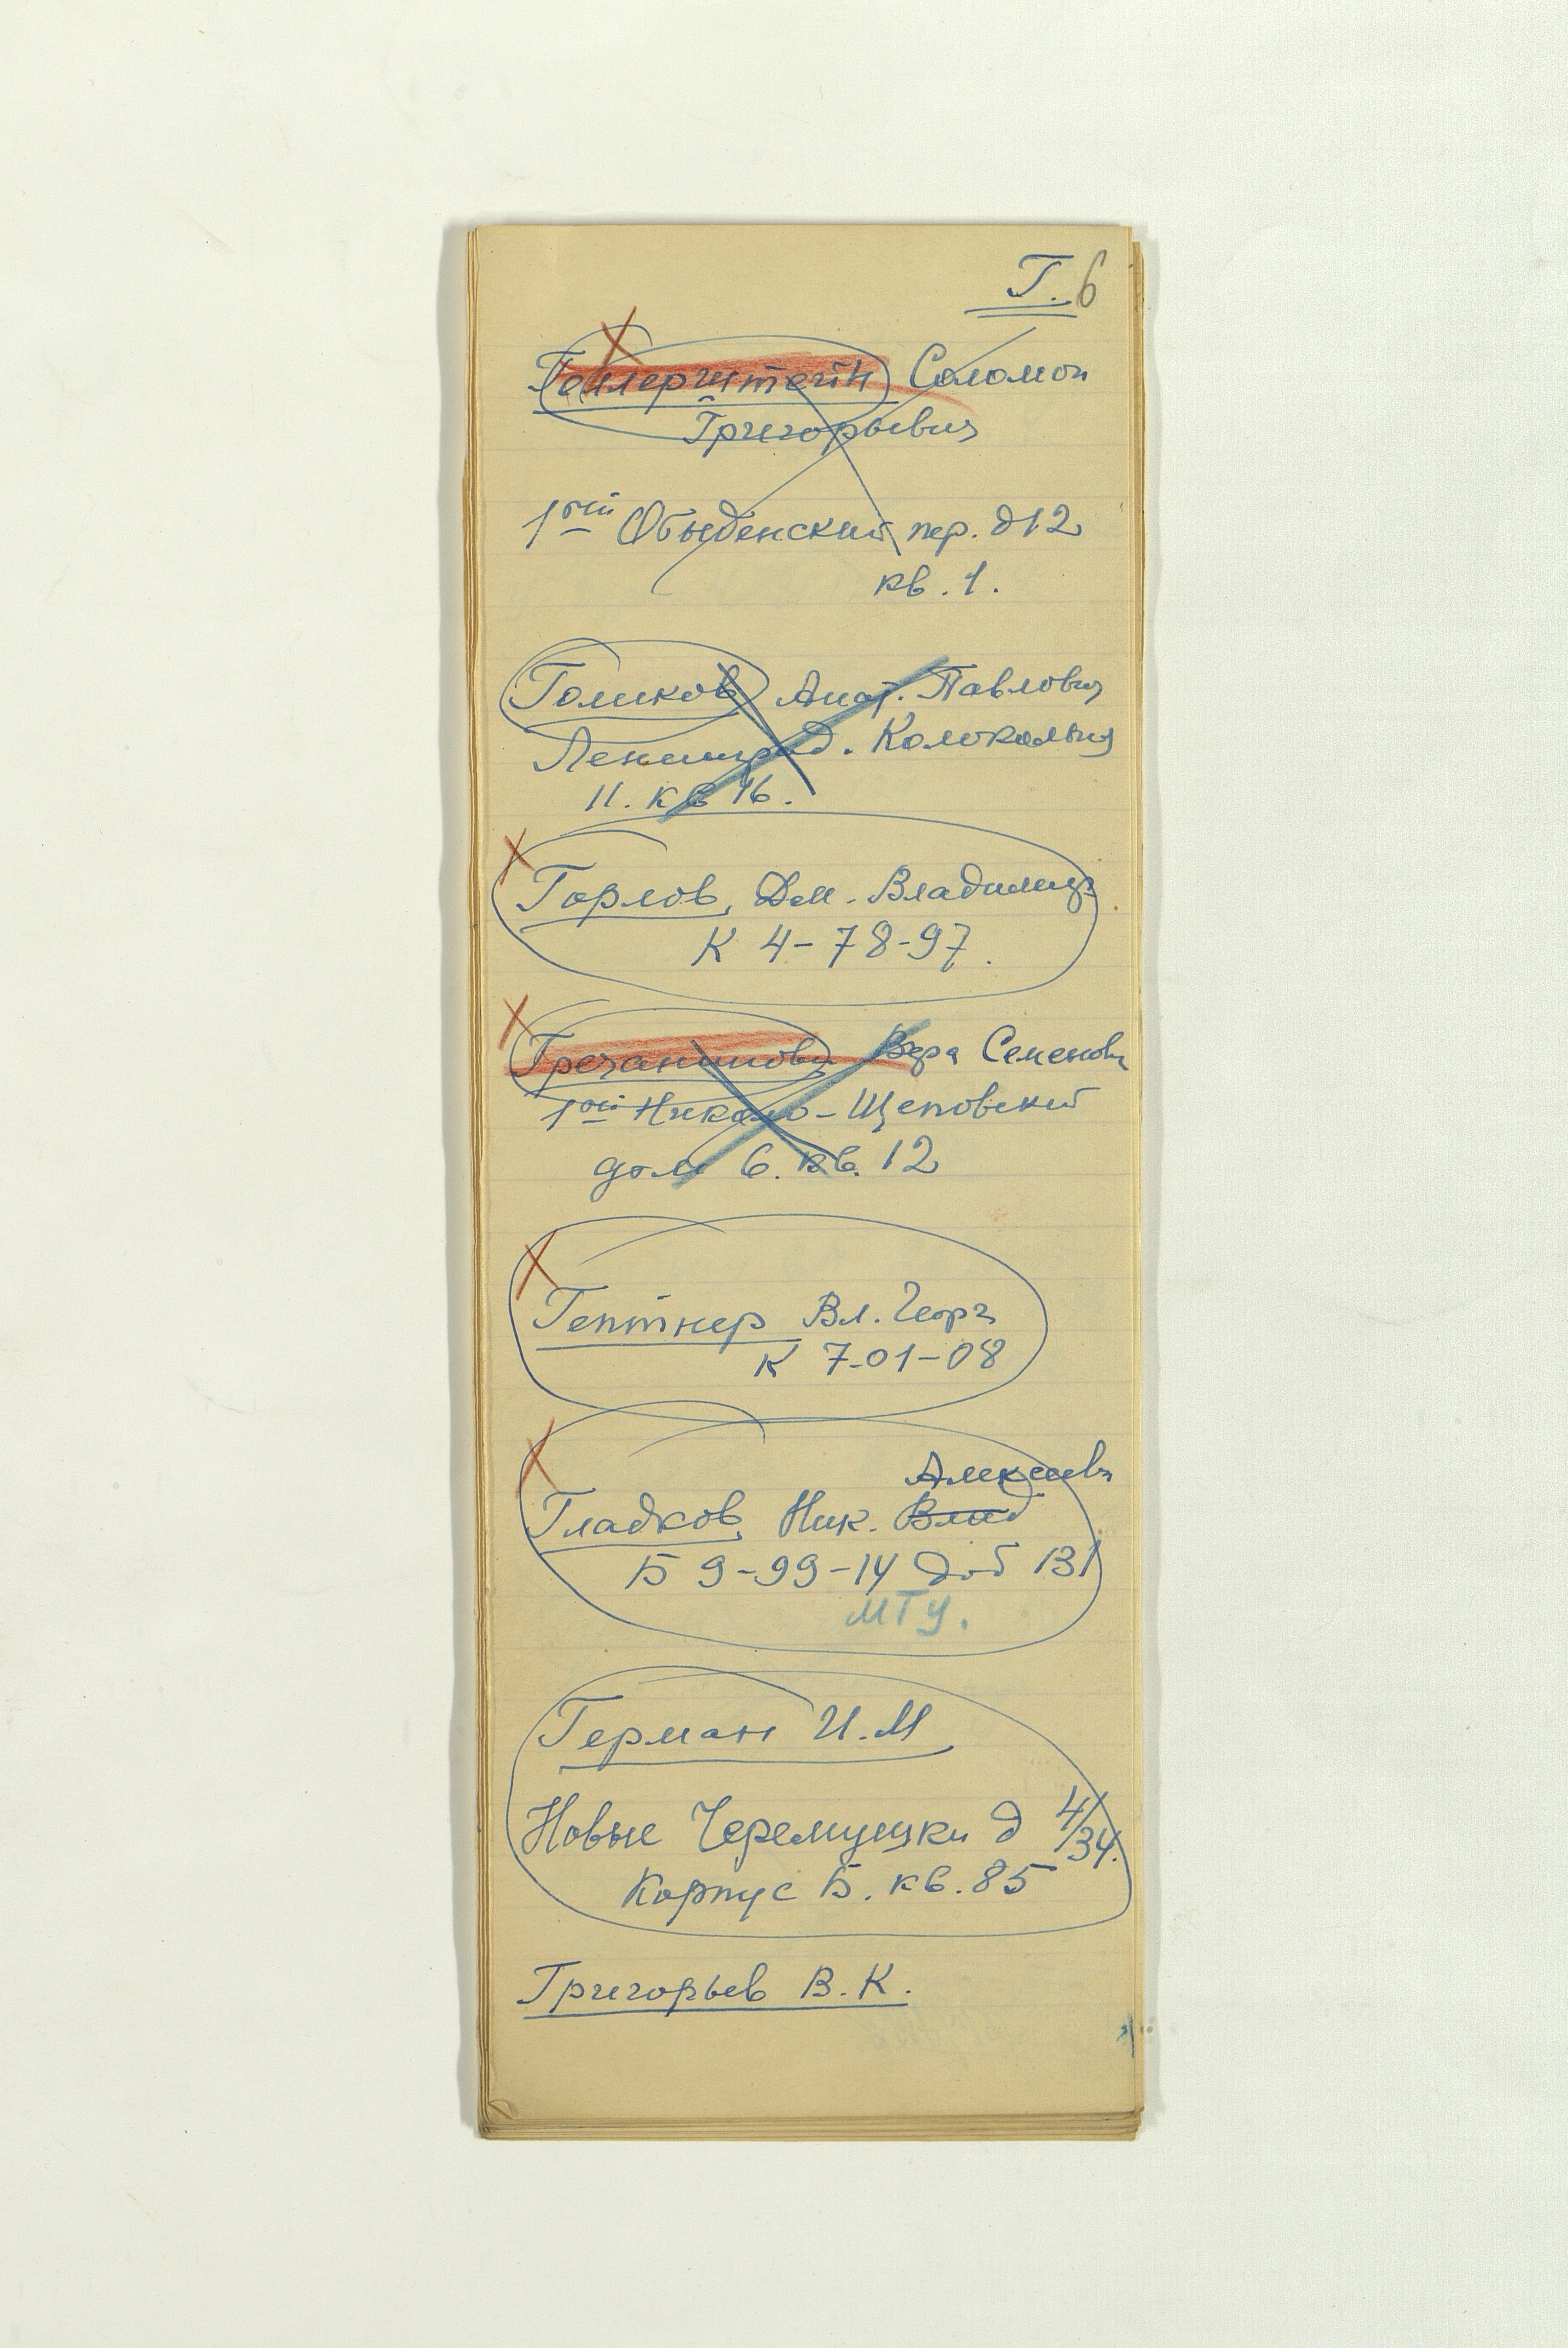 Г. 6
Геллерштейн Соломон
Григорьевич
1ый Обыденский пер. д 12
кв. 1.
Голиков Анат. Павлович
Ленинград. Колокольная
11. кв 16.
Горлов, Дм. Владимир
К 4-78-97.
Гречанинова Вера Семеновн
1ый Николо-Щеповский
дом 6. кв. 12
Гептнер Вл. Георг
К 7-01-08
Алексеевич
Гладков, Ник. Влад
Б 9-99-14 доб 131
МТУ.
Герман И.М
Новые Черемушки д 4/34.
Корпус Б. кв. 85
Григорьев В. К.